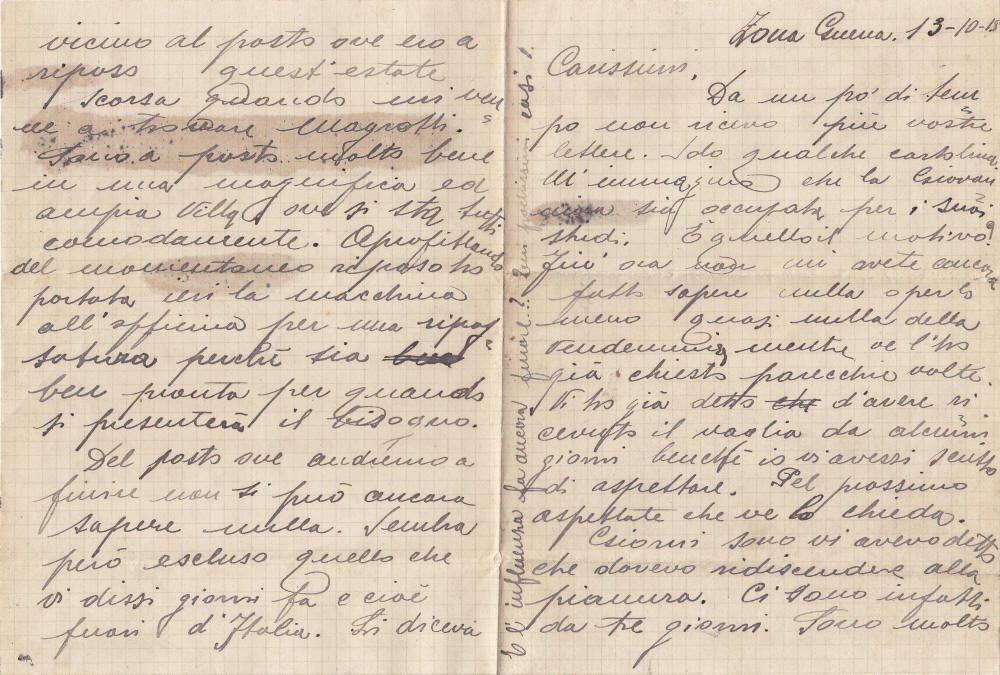 Zona Guerra. 13-10-18
Carissimi,
Da un pò di tem
po non ricevo più vostre
lettere. Solo qualche cartolina.
M'immagino che la Giovan
sia occupata per i suoi
studi. È quello il motivo?
Fin' ora non mi avete ancora
fatto sapere nulla o per lo
meno quasi nulla della
vendemmia, mentre ve l'ho
già chiesto parecchie volte.
Vi ho già detto che d'avere ri
cevuto il vaglia da alcuni
giorni benché io vi avessi scritto
di aspettare. Pel prossimo
aspettate che ve lo chieda.
Giorni sono vi avevo detto
che dovevo ridiscendere alla
pianura. Ci sono infatti
da tre giorni. Sono molto
vicino al posto ove ero a
riposo quest'estate
scorsa quando mi ven
ne a trovare Magrotti.
Sono a posto molto bene
in una magnifica ed
ampia villa, ove si sta tutti
comodamente. Aprofittando
del momentaneo riposo ho
portata la macchina
all'officina per una ripas
satura perché sia
ben pronta per quando
si presenterà il bisogno.
Del posto ove andremo a
finire non si può ancora
sapere nulla. Sembra
però escluso quello che
vi dissi giorni fa e cioè
fuori d'Italia. Si diceva
E l'influenza fa ancora furore..? Qui pochissimi casi!